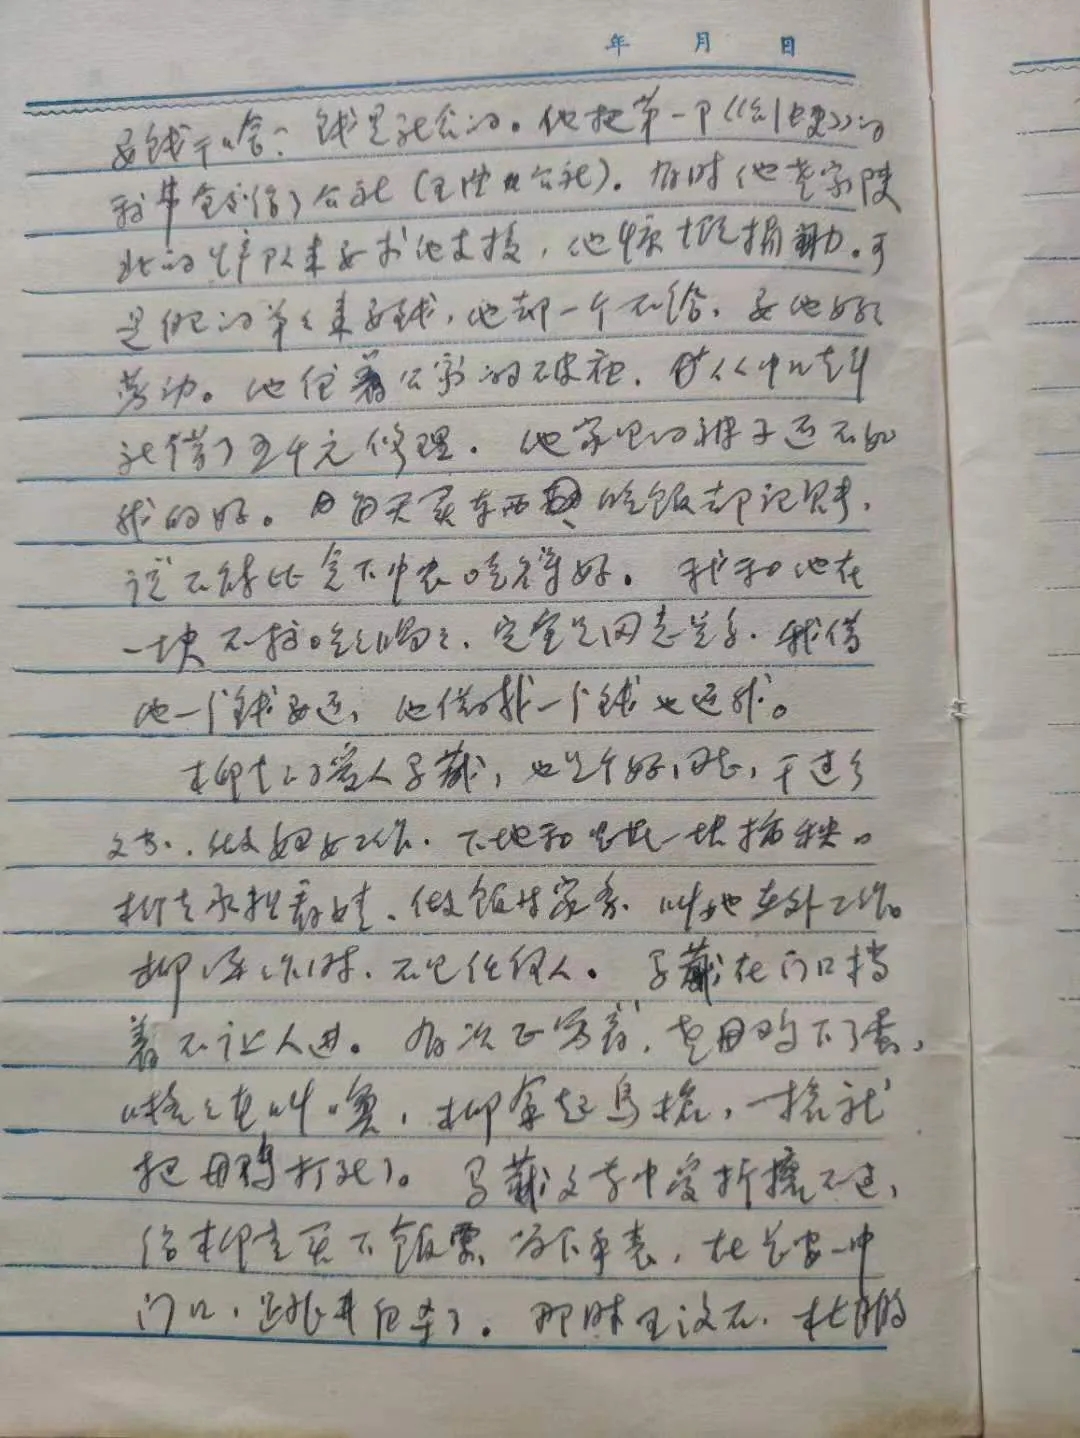 年 月 日
要钱干啥?钱是社会的。他把第一部《创业史》的
稿费全部给了公社(王曲公社)。有时他老家陕
北的生产队来要求他支援,他慷慨捐助。可
是他的弟弟来要钱,他却一个不给,要他好好
劳动。他住着公家的破庙,
社借了五千元修理。他家里的裤子还不如
我的好。每天买东西吃饭都记账,
说不能比贫下中农吃得好。我和他在
一块不搞吃吃喝喝,完全是同志关系。我借
他一个钱要还,他借我一个钱也还我。
柳青的爱人马葳,也是个好同志,干过乡
文书,做妇女工作。下地和群众一块插秧。
柳青承担看娃、做饭等家务,叫她在外工作。
柳写作时,不见任何人。马葳在门口挡
着不让人进。有次正写着,老母鸡下了蛋,
咯咯地叫唤,柳拿起鸟枪,一枪就
把母鸡打死了。马葳文革中受折磨不过,
给柳青买下饭票,留下手表,在长安一中
门口,跳井自杀了。那时王汶石、杜鹏